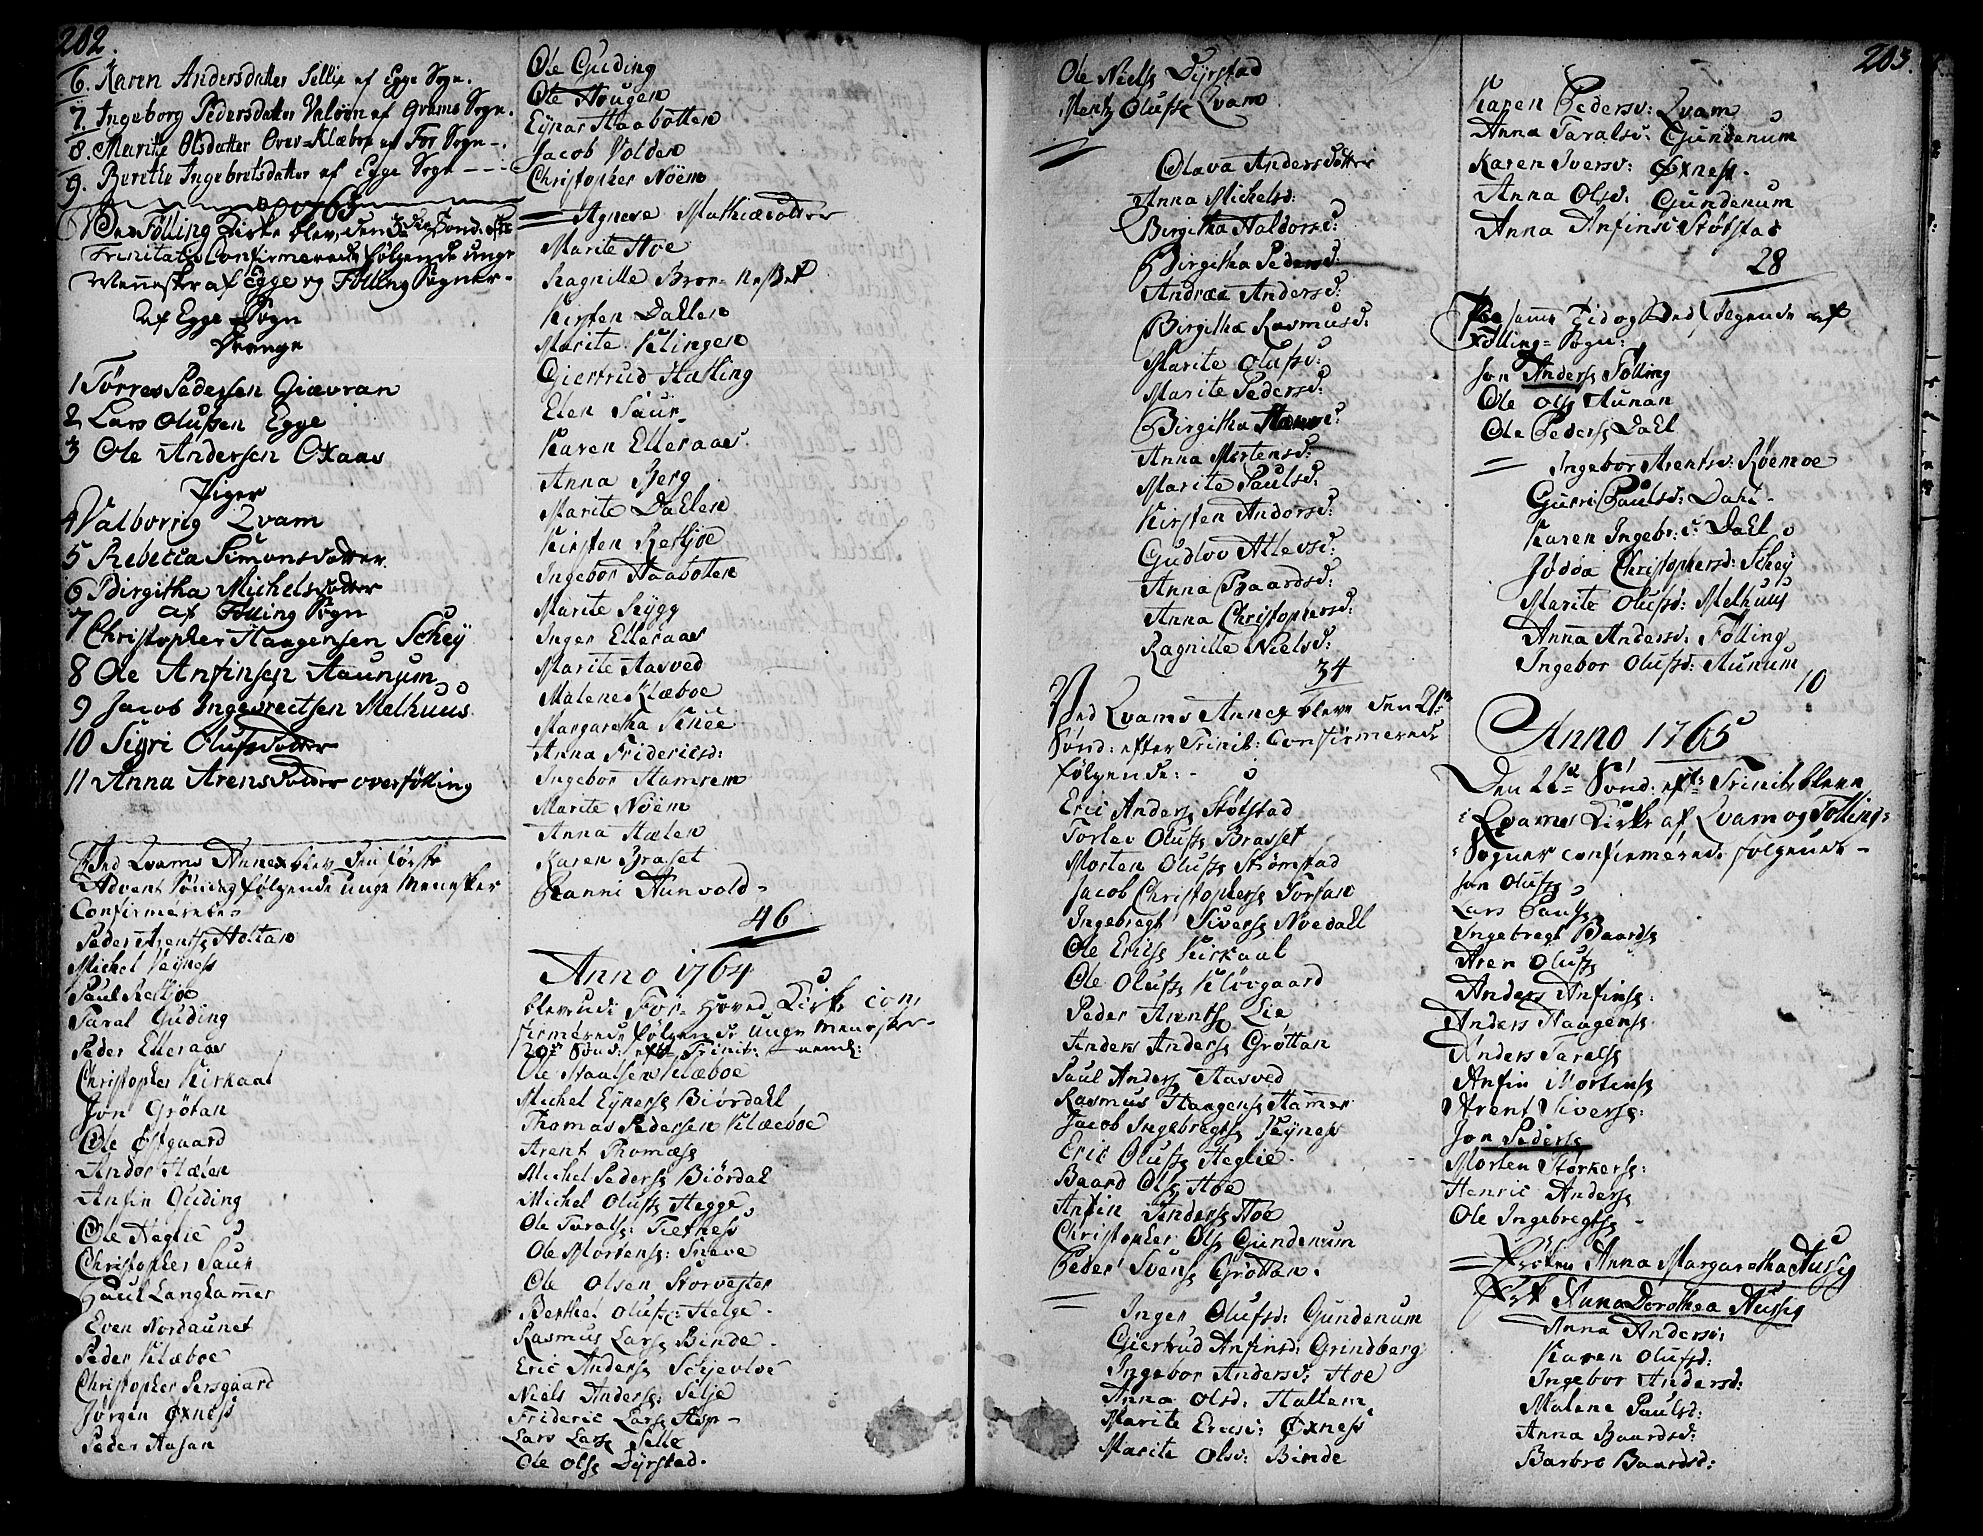 202.
6. Karen Andersdatter Sellie af Egge Sogn.
7. Ingeborg Pedersdatter Valøen af Grams Sogn.
8. Maritie Olsdatter Over-Klæboe af For Sogn -.
9. Berithe Ingebretsdatter af Egge Sogn ----
1763
Ved Følling Kirke blev den Sønd. eft
Trinitatis Confirmerede følgende unge
Mennesker af Egge og Følling Sogner-
Af Egge Sogn
Drenge
1 Tørres Pedersen Giævran
2 Lars Olufsen Egge
3 Ole Andersen Oxaas
Piger
4 Valborrig Qvam
5 Rebecca Simonsdatter
6 Birgitha Michelsdatter
af Følling Sogn
7 Christopher Haagensen Schey
8 Ole Anfinsen Haunum
9 Jacob Ingebreitsen Melhuus
10 Sigri Olufsdatter
11 Anna Arensdatter overfölling
Ved Qvams Annex blev Den første
Advent Söndag følgende unge Menesker
Confirmerede
Peder Arentss Holtan
Michel Veÿness
Paul Reitsioe
Taral Guding
Peder Elleraas
Christopher Kirkaal
Jon Grötan
Ole Östgaard
Andor Hælen
Anfin Guding
Ole Heglie
Christopher Saur
Paul Langhamer
Even Nordaunet
Peder Klæboe
Christopher Sersgaard
Jörgen Öxness
Peder Aasan
Ole Guding
Ole Hougen
Eÿnar Haabotten
Jacob Volden
Christopher Nöem
Agnese Mathiædatter
Marite Hoe
Ragnille Broe-nesset
Kirsten Dahlen
Marite Klingen
Giertrud Hatling
Elen Saur
Karen Elleraas
Anna Berg
Marite Dahlen
Kirsten Reitsjoe
Ingebor Haabotten
Marite Rÿgg
Inger Elleraas
Marite Aasved
Malene Klæboe
Margaretha Schee
Anna Friderichsd:
Ingebor Hamrem
Marite Nöem
Anna Hælen
Karen Braset
Ranni Aunvold-
46
Anno 1764
bleve udi For- Hoved Kirke con,
firmerede følgende unge Menesker-
20de Sönd: eft Trinit: - neml:
Ole Staalsen Klæboe
Michel Eÿnerss Biördahl
Thomas Pedersen Klæboe
Arent Thomæss
Michel Pederss Biördal
Michel Olufss Hegge
Ole Taralss: Tiefness
Ole Mortenss: Sneve
Ole Olsen Storvester
Berthel Olufss: Helge-
Rasmus Larss Binde-
Eric Anderss Schjevloe
Niels Anderss: Selje
Frideric Larss Hegg-
Lars Larss Selle
Ole Olss Dÿrstad.
203.
Ole Nielss Dÿrstad
Mentz Olufss Qvam
Olava Andersdatter
Anna Michelsd:
Birgitha Haldorsd:
Birgitha Pedersd:
Andrea Andersd:
Birgitha Rasmusd:
Marite Olufsd:
Marite Pedersd:
Birgitha
Anna Mortensd:
Marite Paulsd:
Kirsten Andorsd:
Gudlov Atlevsd:
Anna Baardsd:
Anna Christophersd:
Ragnille Nielsd:
34
Ved Qvams Annex bleve den 21de
Sönd: efter Trinit: Confirmerede
følgende:-
Eric Anderss Stötstad
Torlev Olufss Brasset
Morten Olufss Strömstad
Jacob Christopherss Torsan
Ingebregt Siverss Noedahl
Ole Ericss Kirkaal
Ole Olufss Klövgaard
Peder Arentss Lie
Anders Anderss Gröttan
Paul Anderss Aasved
Rasmus Haagenss Hamer
Jacob Ingebregtss Veÿness
Eric Olufss Heglie.
Baard Olss Hoe
Anfin Anderss Hoe
Christopher Olss Gundenum
Peder Svenss Gröttan.
Inger Olufsd: Gundenum
Giertrud Anfinsd: Grindberg
Ingebor Andersd: Hoe
Anna Olsd: Haltem
Marite Ericsd: Öxness
Marite Olsd: Binde
Karen Pedersd: Qvam
Anna Taralsd: Gundenum
Karen Iversd: Öxness.
Anna Olsd: Gundenum
Anna Anfinsd: Stötstad
28
Paa samme Tid og Sted følgende af
Fölling-Sogn:
Jon Anderss Fölling
Ole Olss Aunan
Ole Pederss Dahl
Ingebor Arentsd: Röemoe
Gurri Paulsd: Dahl-
Karen Ingebr:d: Dahl
Jödda Christophersd: Schey
Marite Olufsd: Melhuus
Anna Andersd: Fölling
Ingebor Olufsd: Aunum
10
Anno 1765
Den 21de Sönd: eft: Trinit: bleve
Qvams Kirke af Qvam og Fölling-
Sogner confirmerede følgende-
Jon Olufss
Lars Paulss
Ingebregt Baardss
Aren Olufss
Anders Anfinss:
Anders Haagenss
Anders Taralss
Anfin Mortenss
Arent Siverss:
Jon Pederss
Morten Störkerss:
Henric Anderss
Ole Ingebregtss-
Anna Margaretha Hussig
Anna Dorothea Hussig
Anna Andersd:
Karen Olufsd:
Ingebor Andersd:
Malene Paulsd:
Anna Baardsd:
Barbro Baardsd: